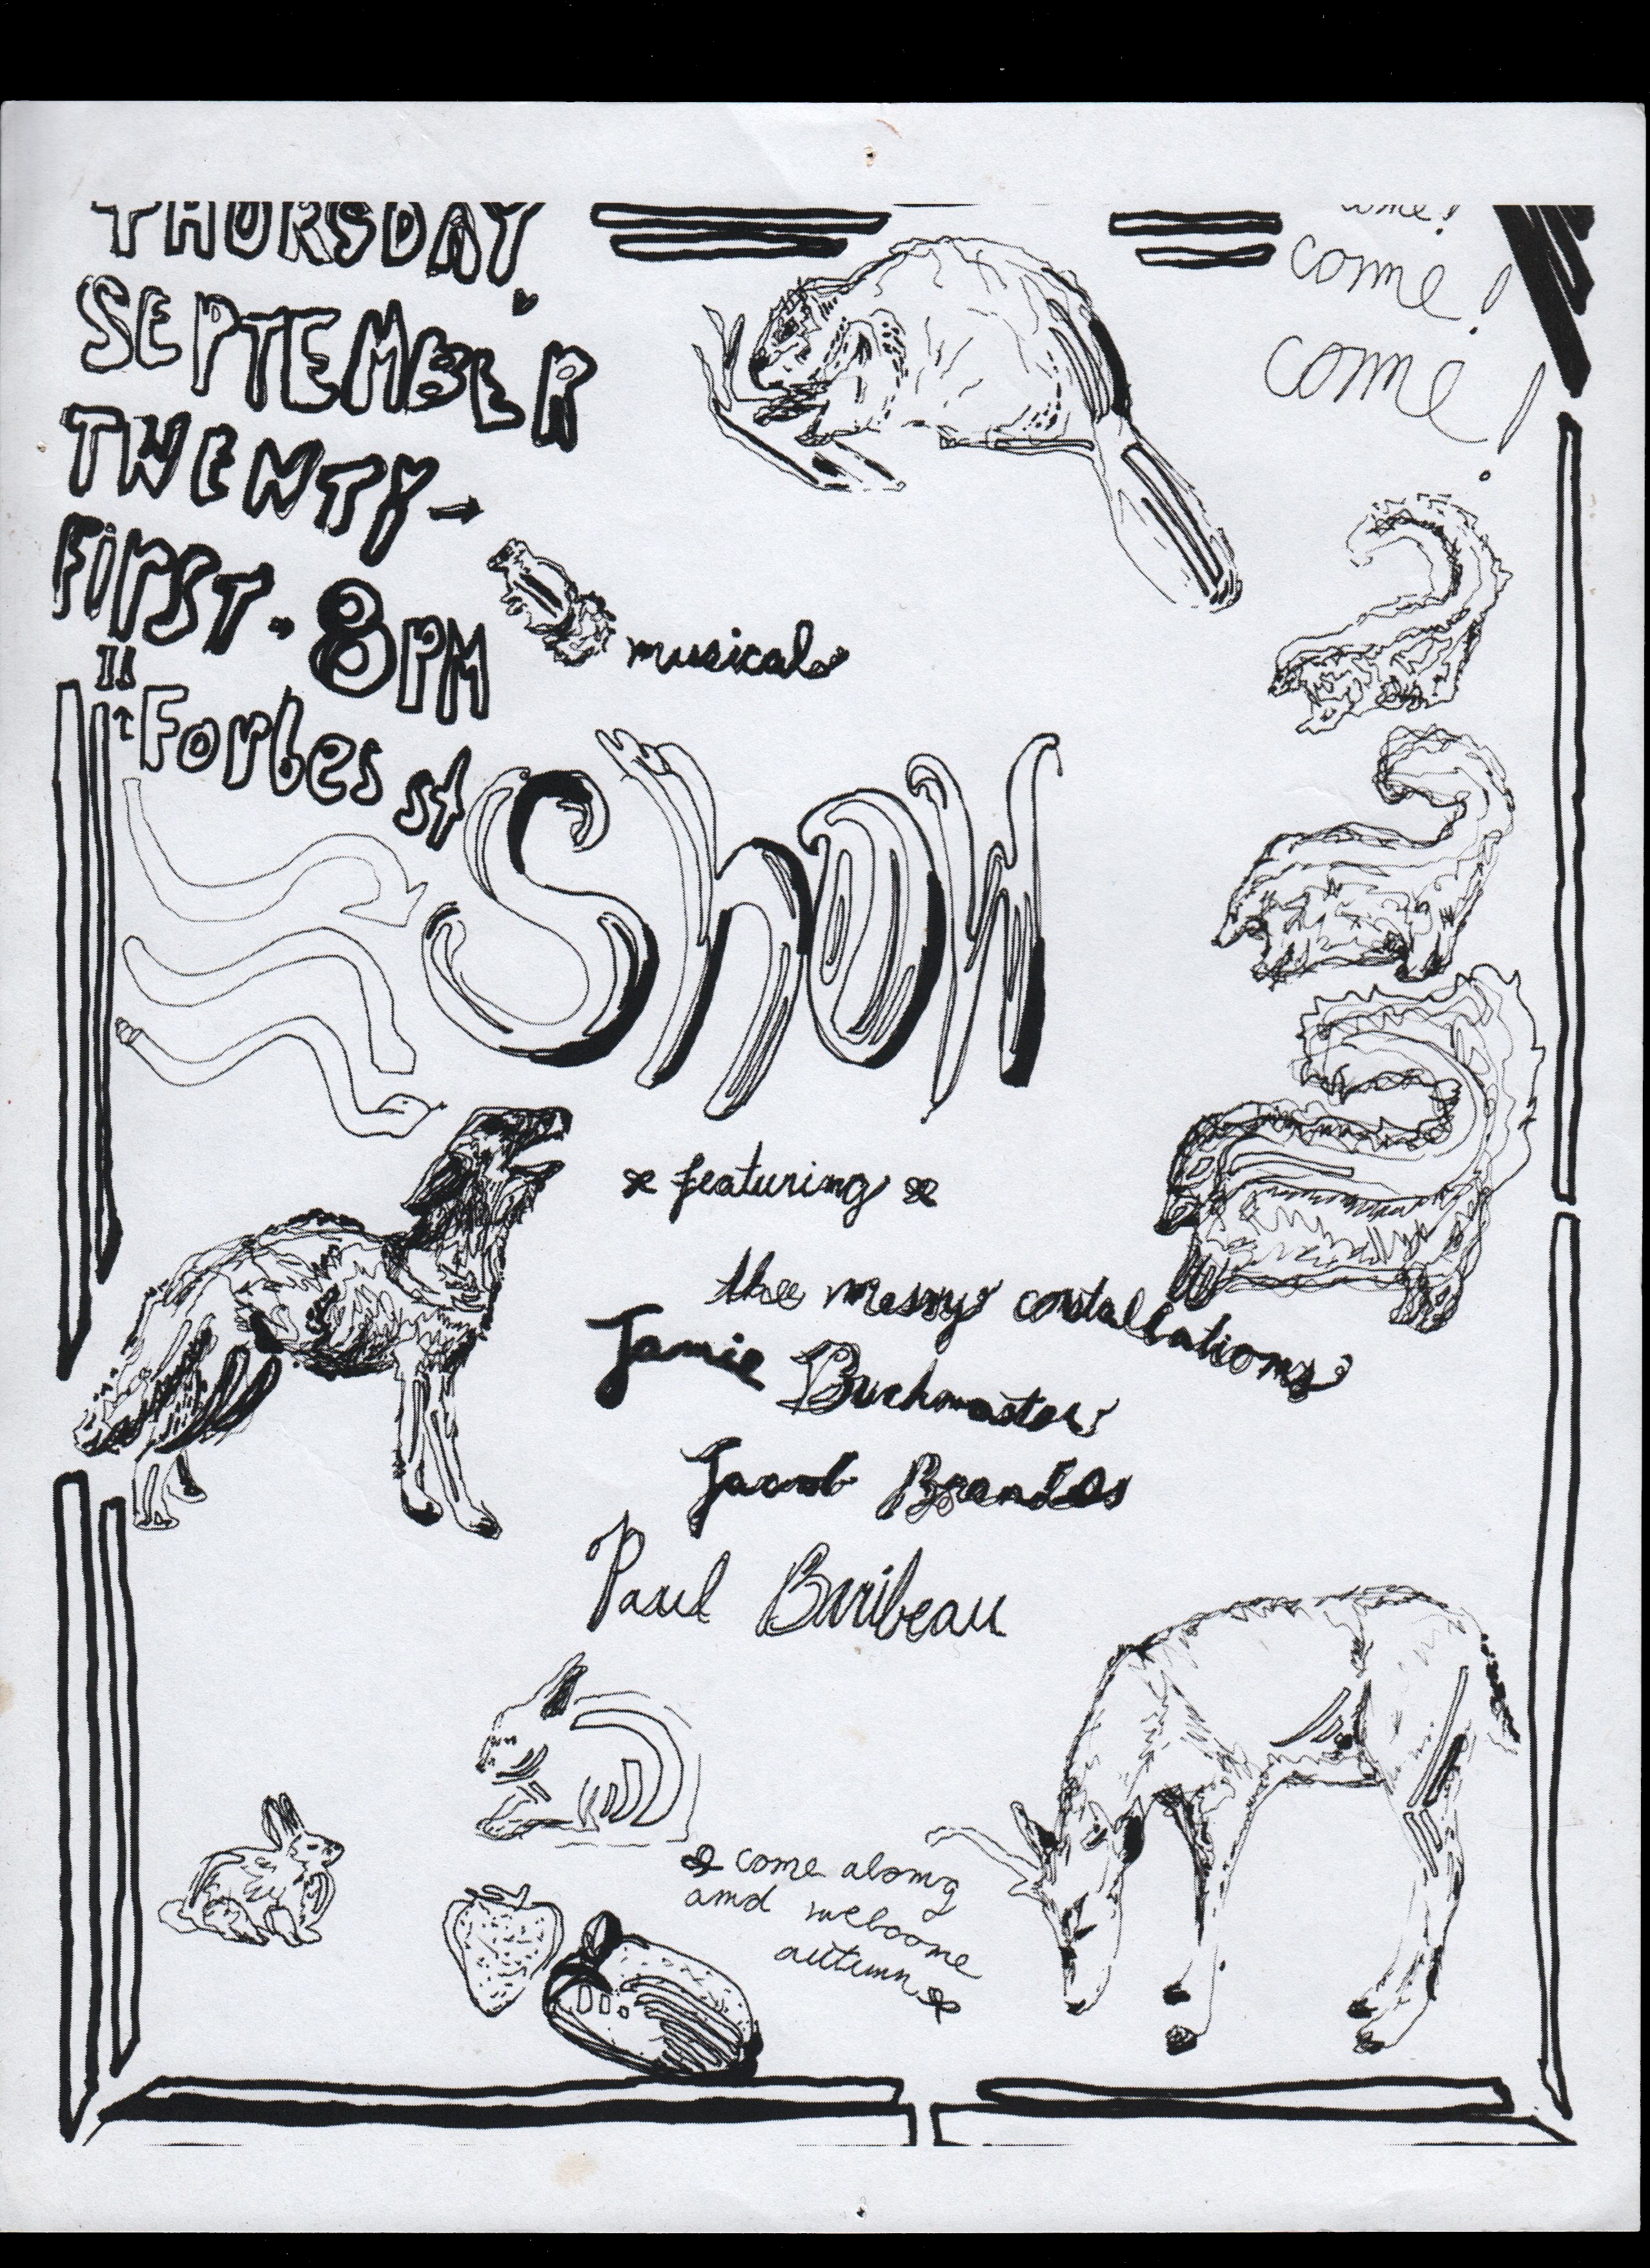 THURSDAY.
SEPTEMBER
TWENTY-
FIRST. 8PM
11
Forbes st
come!
come!
come!
musical
Show
featuring
thee messy constallations
Jamie Buckmaster
Jacob Brandes
Paul Baribeau
come along
and welcome
autumn